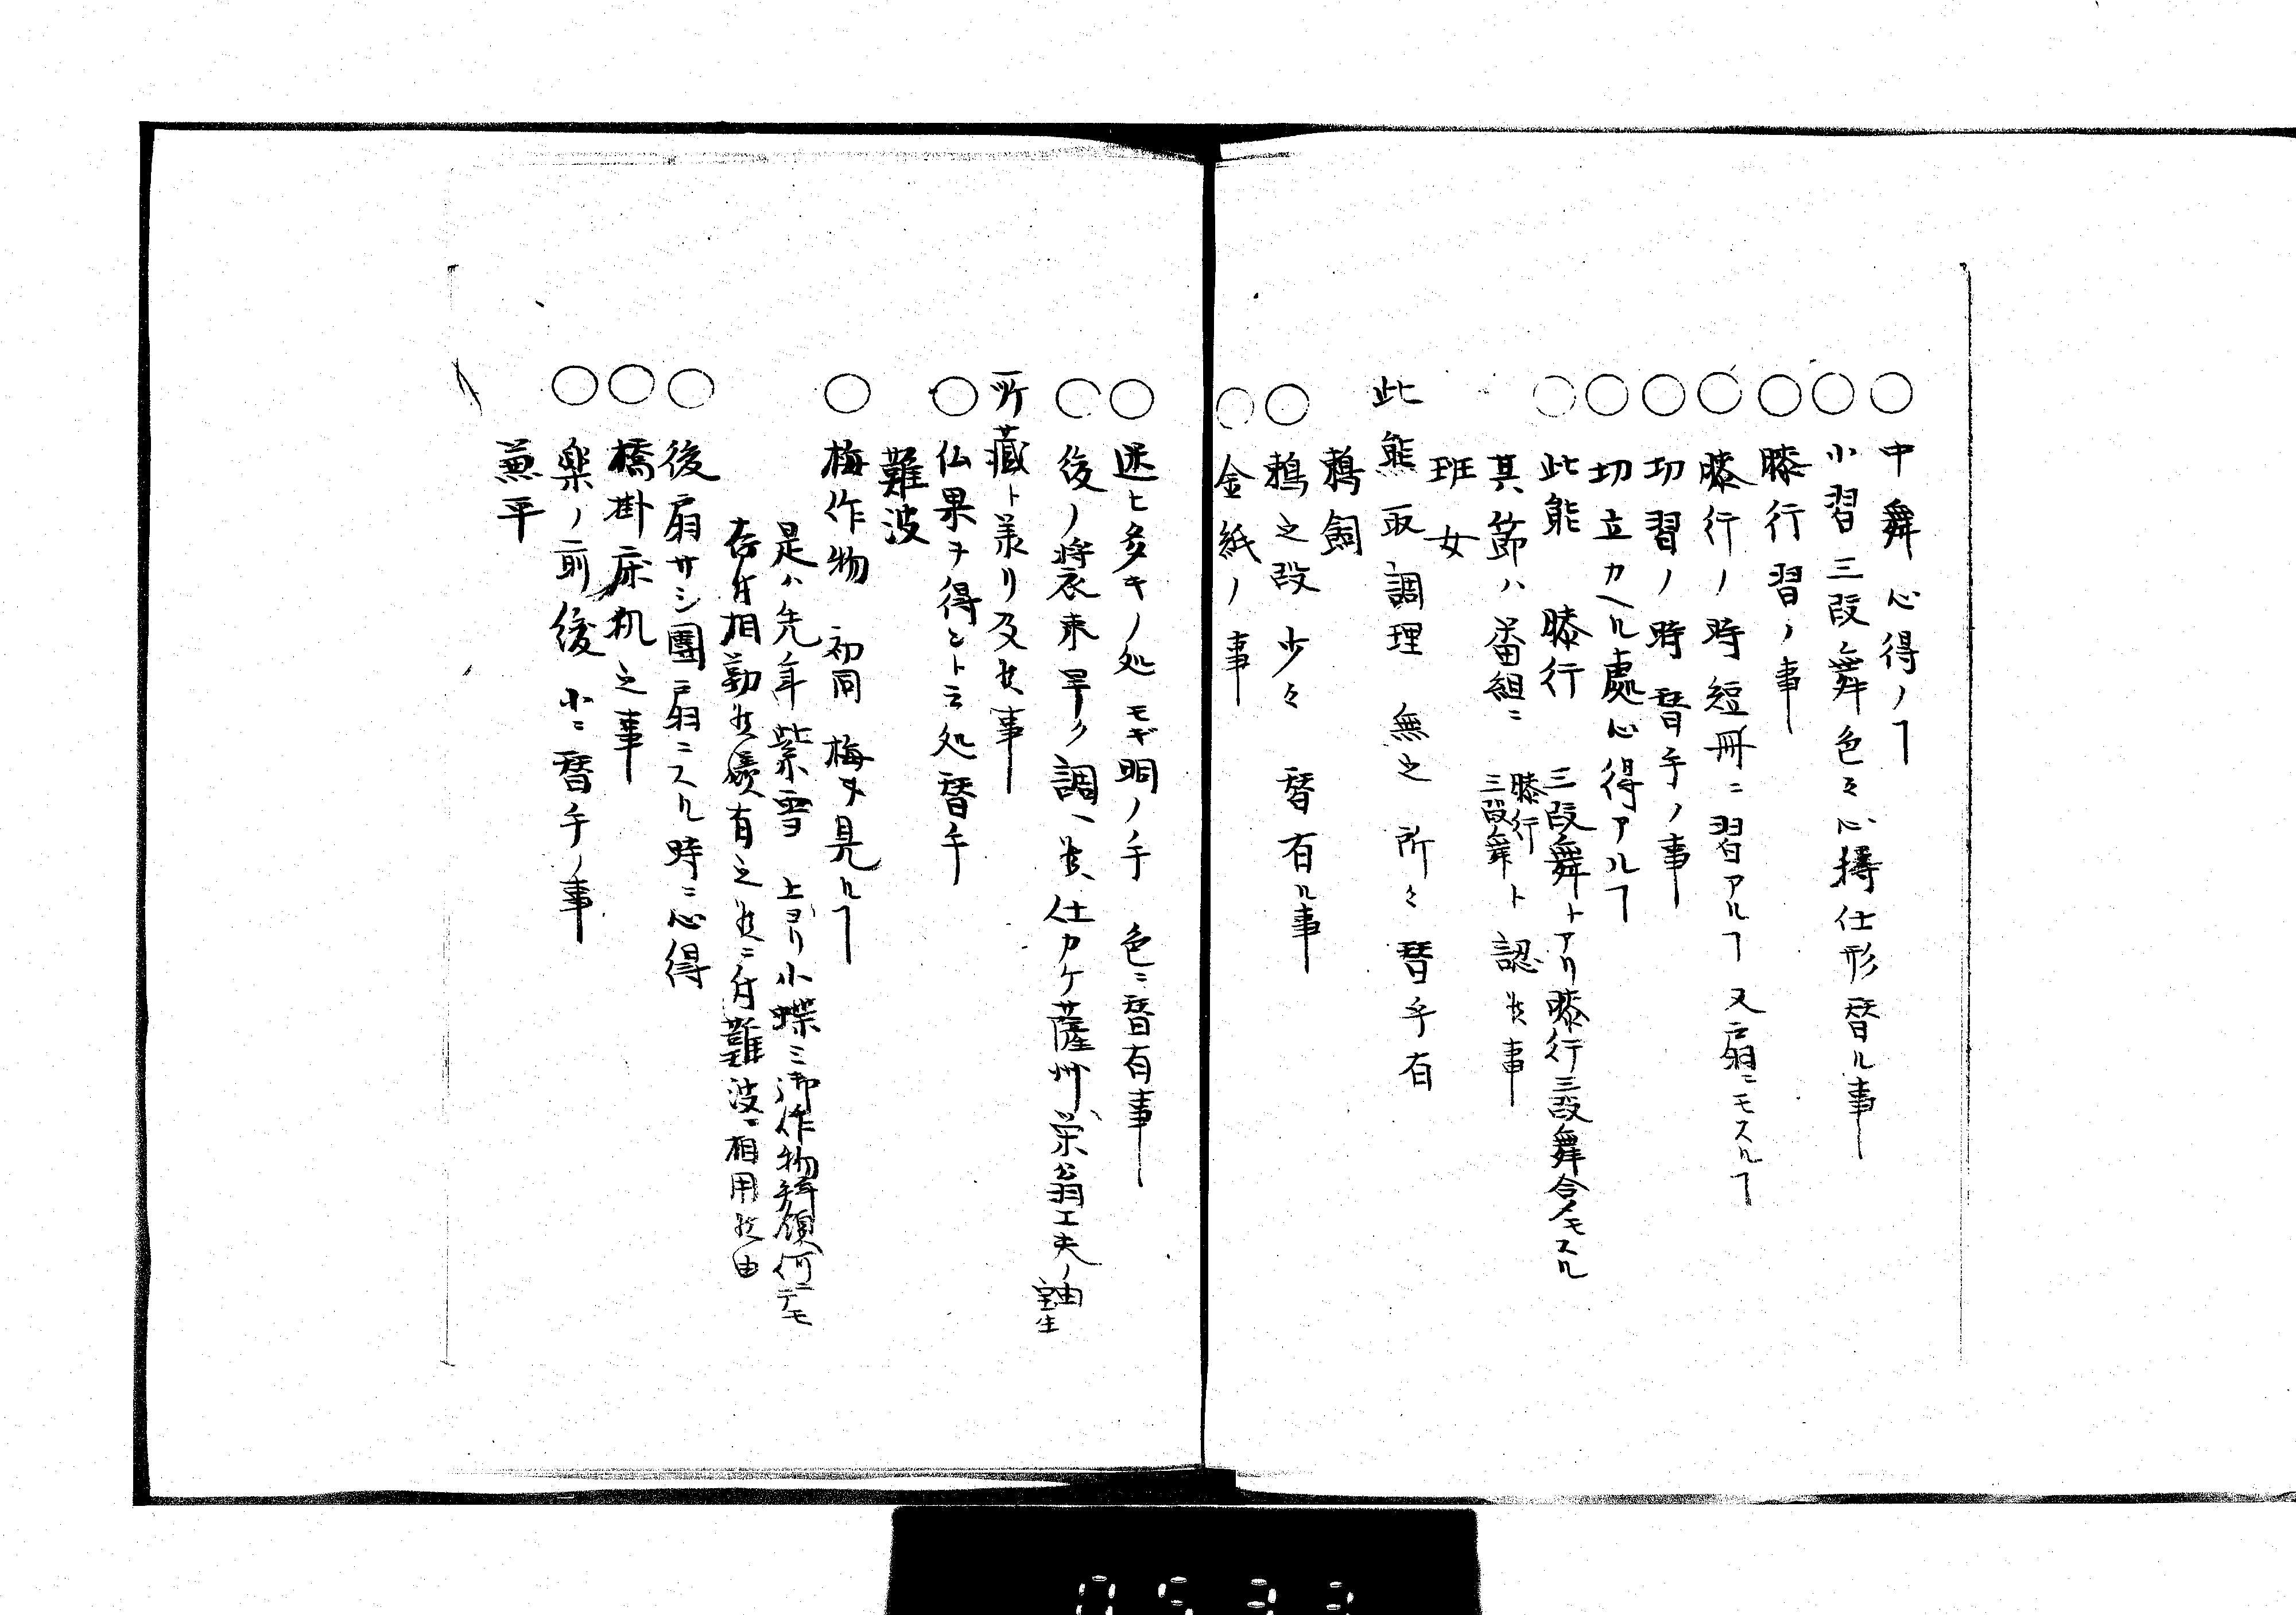 ○中舞心得ノヿ
○小習三段之舞色々心得仕形替ル事
○膝行習ノ事
○膝行ノ時短冊ニ習アルヿ又扇ニモスルヿ
○切習ノ時替手ノ事
○切立カヘル處心得アルヿ
○此能 膝行 三段舞トアリ膝行三段舞合ノモスル
其節ハ番組ニ 膝行 三段舞 ト認候事
班女
此熊取調理無之所々替手有
鵜飼
○鵜之段少々替有ル事
○金紙ノ事
○迷ヒ多キノ処モギ胴ノ手色ニ替有事
○後ノ装束早ク調ヘ候仕カケ薩州栄翁工夫ノ由 宝生
所蔵ト羨リ及候事
○仏果ヲ得ントニ云処替手
難波
○梅作物 初同梅ヲ見ルヿ
是ハ先年紫雪 上ヨリ小蝶ミ御作物拝領何ニテモ
存付相勤候様有之候ニ付難波ニ相用候由
○後扇サシ團扇ニスル時ニ心得
○橋掛床机之事
○楽ノ前後小ニ替手ノ事
兼平
0533